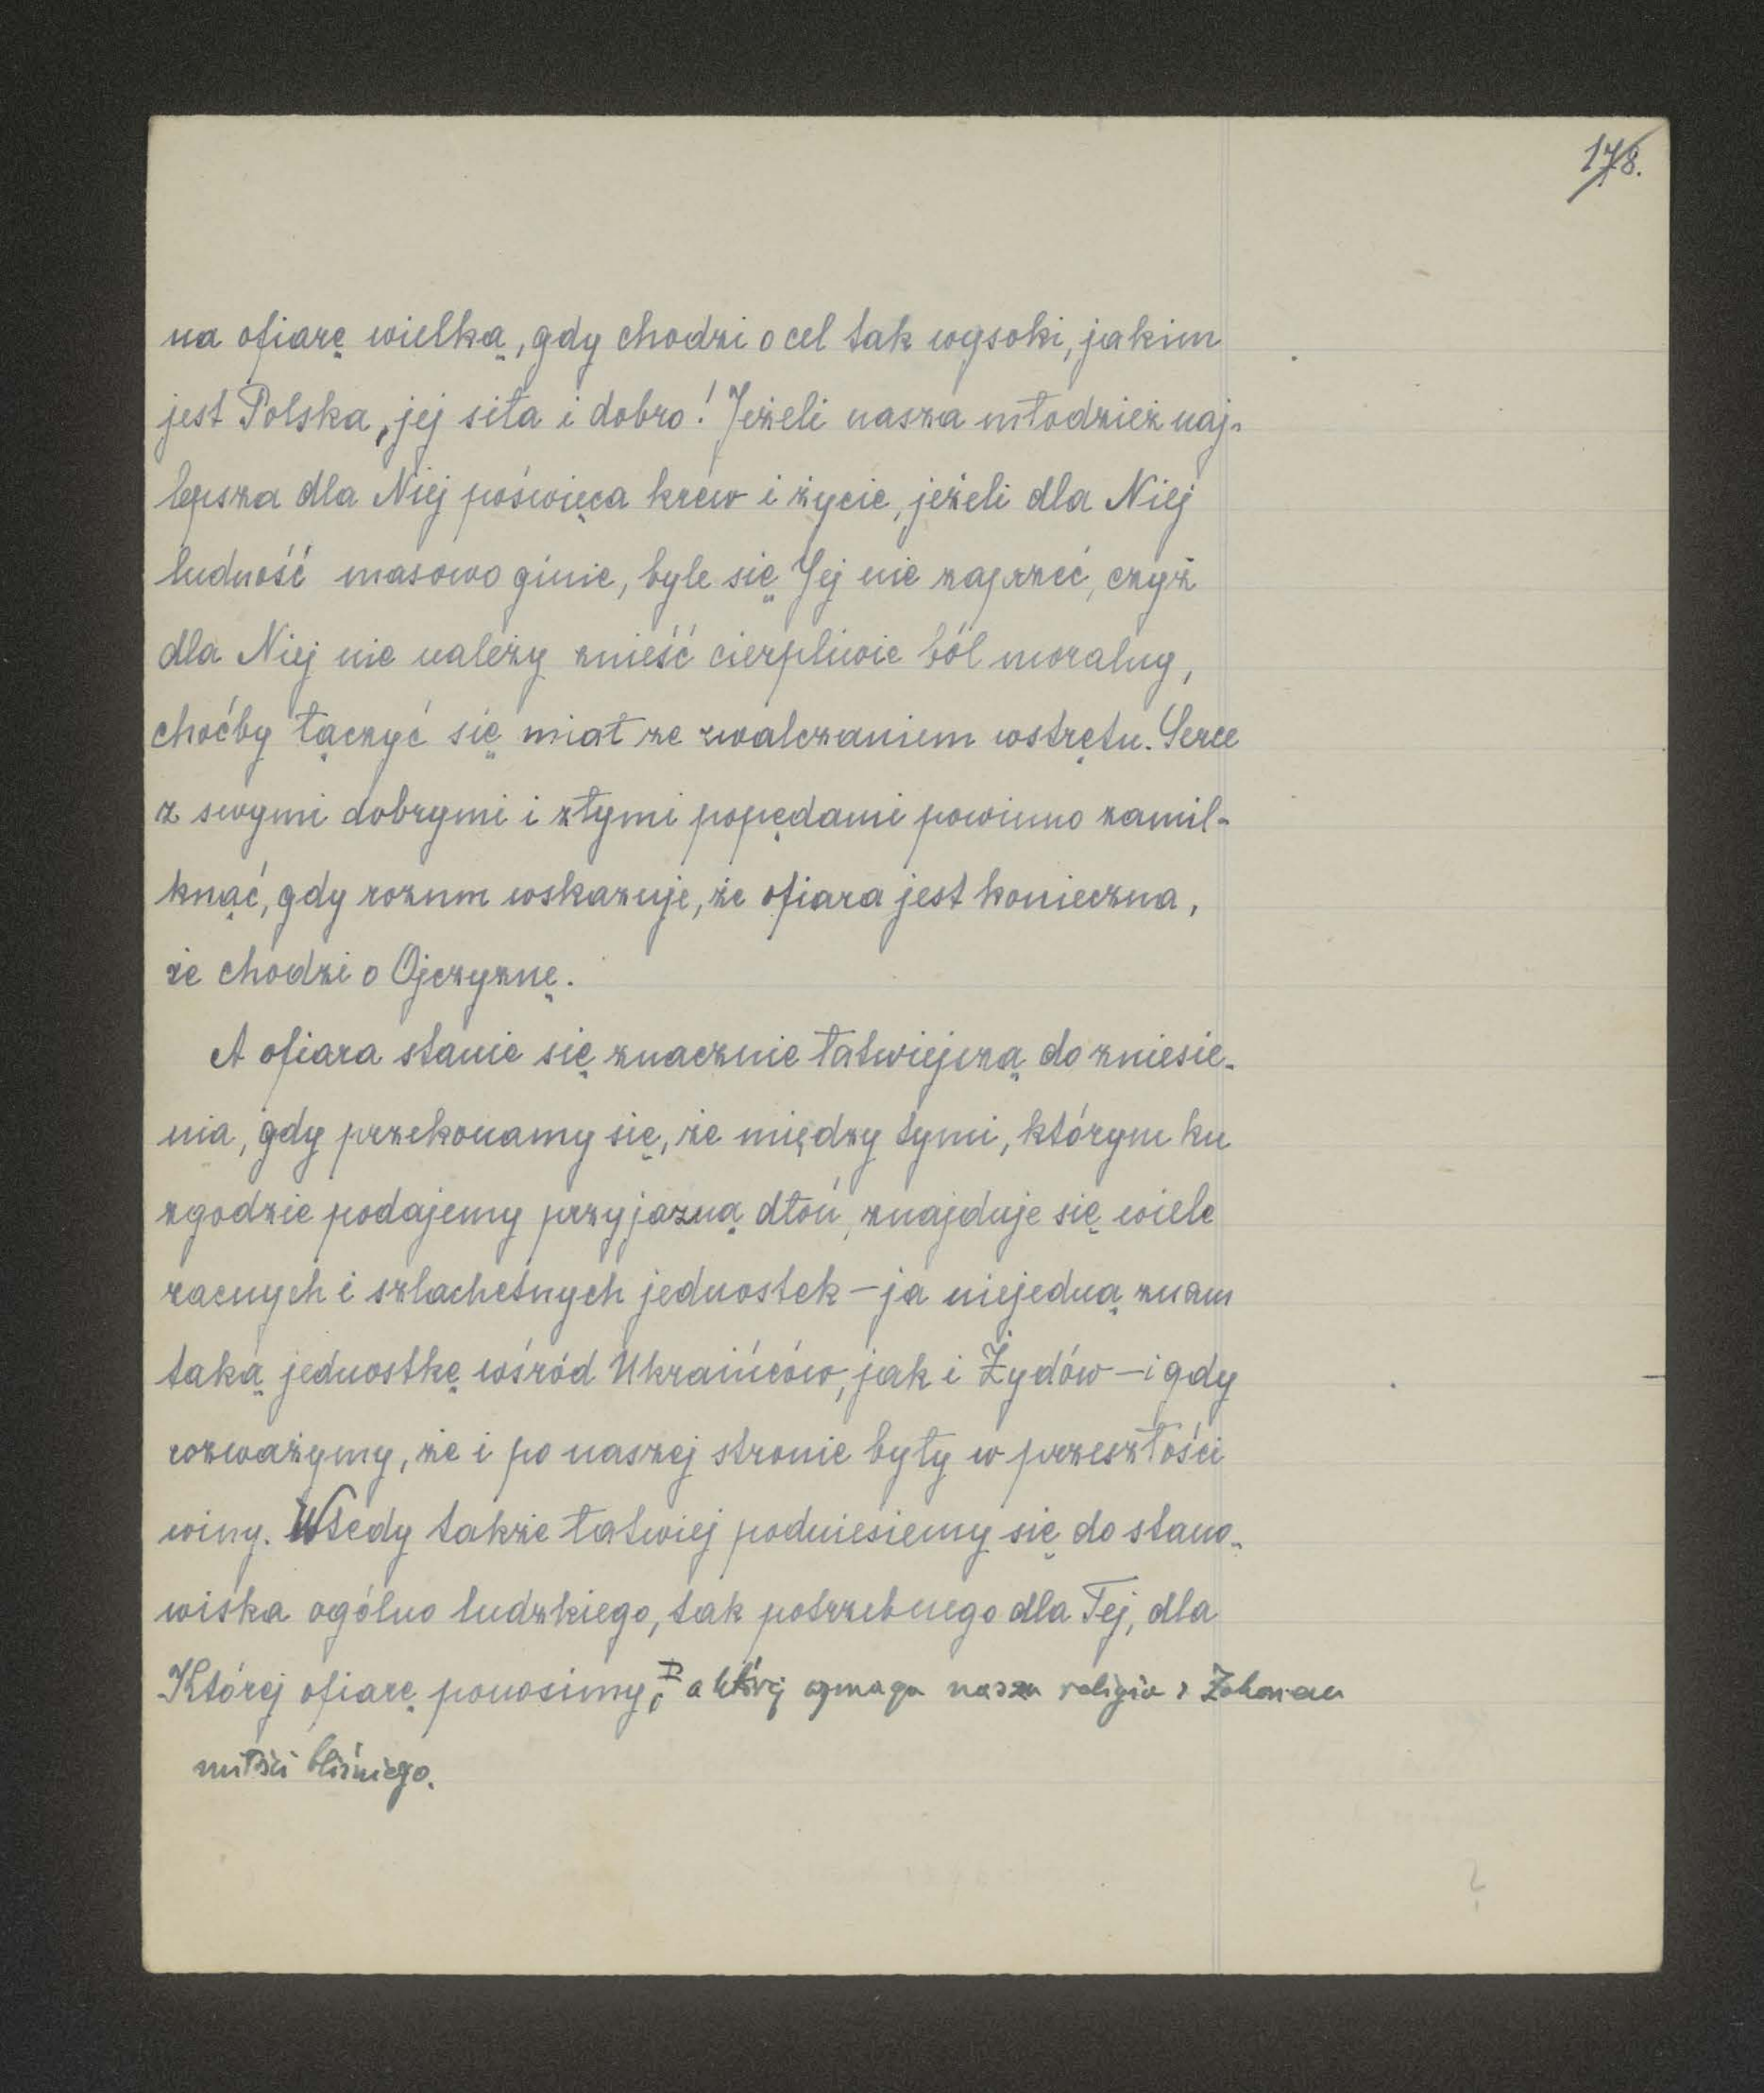 178.
na ofiarę wielką, gdy chodzi o cel tak wysoki, jakim
jest Polska, jej siła i dobro! Jeżeli nasza młodzież naj-
lepsza dla Niej poświęca krew i życie, jeżeli dla Niej
ludność masowo ginie, byle się Jej nie zaprzeć, czyż
dla Niej nie należy znieść cierpliwie ból moralny,
choćby łączyć się miał ze zwalczaniem wstrętu. Serce
z swymi dobrymi i złymi popędami powinno zamil-
knąć, gdy rozum wskazuje, że ofiara jest konieczna,
że chodzi o Ojczyznę.
A ofiara stanie się znacznie łatwiejszą do zniesie-
nia, gdy przekonamy się, że między tymi, którym ku
zgodzie podajemy przyjazną dłoń, znajduje się wiele
zacnych i szlachetnych jednostek – ja niejedną znam
taką jednostkę wśród Ukraińców, jak i Żydów – i gdy
rozważymy, że i po naszej stronie były w przeszłości
winy. Wtedy także łatwiej podniesiemy się do stano-
wiska ogólno ludzkiego, tak potrzebnego dla Tej, dla
Której ofiarę ponosimy, a której wymaga nasza religia i
miłości bliźniego.